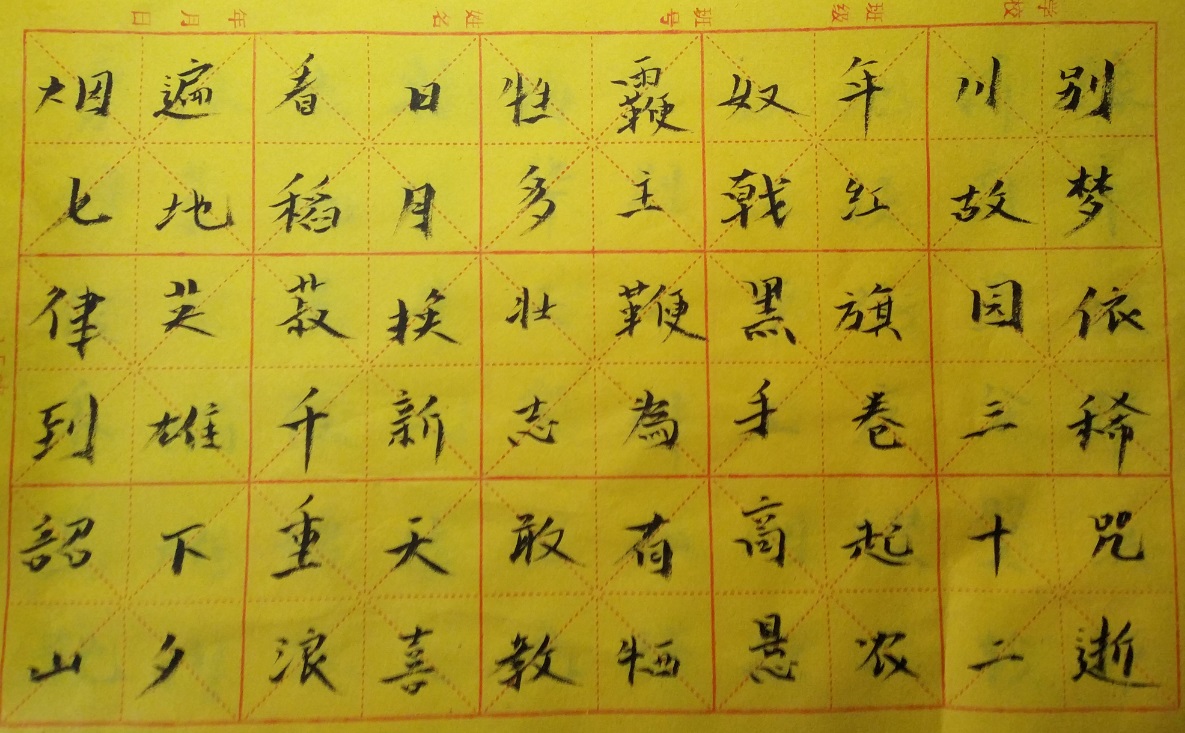 学校 班级 班号 姓名 年 月 日
别梦依稀咒逝
川故园三十二
年红旗卷起农
奴戟黑手高悬
霸主鞭為有牺
牲多壮志敢教
日月换新天喜
看稻菽千重浪
遍地英雄下夕
烟七律到韶山